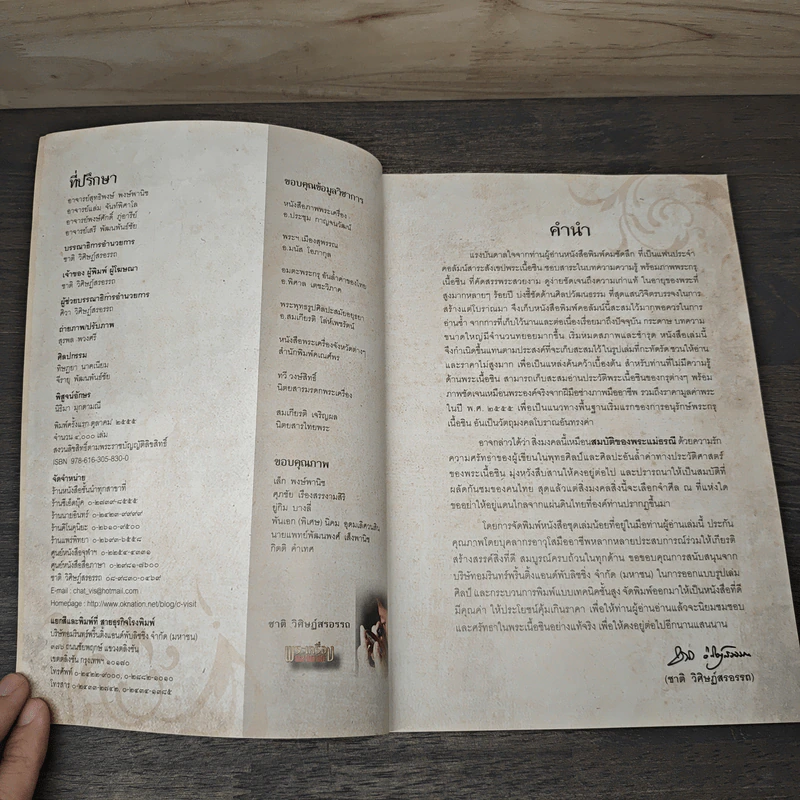 ที่ปรึกษา
อาจารย์สุทธิพงษ์ พงษ์พานิช
อาจารย์แล่ม จันท์พิศาโล
อาจารย์พงษ์ศักดิ์ ภู่อารีย์
อาจารย์เสรี พัฒนพันธ์ชัย
บรรณาธิการอำนวยการ
ชาติ วิศิษฏ์สรอรรถ
เจ้าของ ผู้พิมพ์ ผู้โฆษณา
ชาติ วิศิษฏ์สรอรรถ
ผู้ช่วยบรรณาธิการอำนวยการ
ศิวา วิศิษฏ์สรอรรถ
ถ่ายภาพ/ปรับภาพ
สุรพล พวงศรี
ศิลปกรรม
ทิษฏยา นาคเนียม
จีรายุ พัฒนพันธ์ชัย
พิสูจน์อักษร
นิธิมา มุกดามณี
พิมพ์ครั้งแรก ตุลาคม ๒๕๕๕
จำนวน ๔,๐๐๐ เล่ม
สงวนลิขสิทธิ์ตามพระราชบัญญัติลิขสิทธิ์
ISBN 978-616-305-830-0
จัดจำหน่าย
ร้านหนังสือชั้นนำทุกสาขาที่
ร้านซีเอ็ดบุ๊ค ๐-๒๗๓๙-๘๕๕๕
ร้านนายอินทร์ ๐-๒๔๒๓-๙๙๙๙
ร้านศึกษิต
ร้านแพร่พิทยา
ศูนย์หนังสือจุฬาฯ
ศูนย์หนังสือสื่อภาษา
ชาติ วิศิษฏ์สรอรรถ ๐๘-๙๘๓๐-๐๔๖๙
E-mail : chat_vis@hotmail.com
Homepage : http://www.oknation.net/blog/c-visit
แยกสีและพิมพ์ที่ สายธุรกิจโรงพิมพ์
บริษัทอมรินทร์พริ้นติ้งแอนด์พับลิชชิ่ง จำกัด (มหาชน)
๓๗๖ ถนนชัยพฤกษ์ แขวงตลิ่งชัน
เขตตลิ่งชัน กรุงเทพฯ ๑๐๑๗๐
โทรศัพท์ ๐-๒๔๒๒-๙๐๐๐, ๐-๒๘๘๒-๑๐๑๐
โทรสาร ๐-๒๔๓๓-๒๗๔๒, ๐-๒๔๓๔-๑๓๘๕
ขอบคุณข้อมูลวิชาการ
หนังสือภาพพระเครื่อง
อ.ประชุม กาญจนวัฒน์
พระฯ เมืองสุพรรณ
อ.มนัส โอภากุล
อมตะพระกรุ อันล้ำค่าของไทย
อ.พิศาล เตชะวิภาค
พระพุทธรูปศิลปะสมัยอยุธยา
อ.สมเกียรติ โล่ห์เพชรัตน์
หนังสือพระเครื่องจังหวัดต่างๆ
สำนักพิมพ์คเณศ์พร
ทวี วงษ์สิทธิ์
นิตยสารมรดกพระเครื่อง
สมเกียรติ เจริญผล
นิตยสารไทยพระ
ขอบคุณภาพ
เล็ก พงษ์พานิช
ศุภชัย เรืองสรรงามสิริ
ยูกิม บางลี่
พันเอก (พิเศษ) นิคม
นายแพทย์พัฒนพงศ์ เส็งพานิช
กิตติ คำเทศ
ชาติ วิศิษฏ์สรอรรถ
คำนำ
แรงบันดาลใจจากท่านผู้อ่านหนังสือพิมพ์คมชัดลึก ที่เป็นแฟนประจำ
คอลัมน์สาระสังเขปพระเนื้อชิน ชอบสาระในบทความความรู้ พร้อมภาพพระกรุ
เนื้อชิน ที่คัดสรรพระสวยงาม ดูง่ายชัดเจนถึงความเก่าแท้ ในอายุของพระที่
สูงมากหลายๆ ร้อยปี บ่งชี้ชัดด้านศิลปวัฒนธรรม ที่สุดแสนวิจิตรบรรจงในการ
สร้างแต่โบราณมา จึงเก็บหนังสือพิมพ์คอลัมน์นี้สะสมไว้มากพอควรในการ
อ่านซ้ำ จากการที่เก็บไว้นานและต่อเนื่องเรื่อยมาถึงปัจจุบัน กระดาษ บทความ
ขนาดใหญ่มีจำนวนทยอยมากขึ้น เริ่มหมดสภาพและชำรุด หนังสือเล่มนี้
จึงกำเนิดขึ้นแทนตามประสงค์ที่จะเก็บสะสมไว้ ในรูปเล่มที่กะทัดรัด ชวนให้อ่าน
และราคาไม่สูงมาก เพื่อเป็นแหล่งค้นคว้าเบื้องต้น สำหรับท่านที่ไม่มีความรู้
ด้านพระเนื้อชิน สามารถเก็บสะสมอ่านประวัติพระเนื้อชินของกรุต่างๆ พร้อม
ภาพชัดเจนเหมือนพระองค์จริงจากฝีมือช่างภาพมืออาชีพ รวมถึงราคามูลค่าพระ
ในปี พ.ศ. ๒๕๕๕ เพื่อเป็นแนวทางพื้นฐานเริ่มแรกของการอนุรักษ์พระกรุ
เนื้อชิน อันเป็นวัตถุมงคลโบราณอันทรงค่า
อาจกล่าวได้ว่า สิ่งมงคลนี้เหมือนสมบัติของพระแม่ธรณี ด้วยความรัก
ความศรัทธาของผู้เขียนในพุทธศิลป์และศิลปะอันล้ำค่าทางประวัติศาสตร์
ของพระเนื้อชิน มุ่งหวังสืบสานให้คงอยู่ต่อไป และปรารถนาให้เป็นสมบัติที่
ผลัดกันชมของคนไทย สุดแล้วแต่สิ่งมงคลสิ่งนี้จะเลือกจำศีล ณ ที่แห่งใด
ขออย่าให้อยู่แดนไกลจากแผ่นดินไทยที่องค์ท่านปรากฏขึ้นมา
โดยการจัดพิมพ์หนังสือชุดเล่มน้อยที่อยู่ในมือท่านผู้อ่านเล่มนี้ ประกัน
คุณภาพโดยบุคลากรอาวุโสมืออาชีพหลากหลายประสบการณ์ร่วมให้เกียรติ
สร้างสรรค์สิ่งที่ดี สมบูรณ์ครบถ้วนในทุกด้าน ขอขอบคุณการสนับสนุนจาก
บริษัทอมรินทร์พริ้นติ้งแอนด์พับลิชชิ่ง จำกัด (มหาชน) ในการออกแบบรูปเล่ม
ศิลป์ และกระบวนการพิมพ์แบบเทคนิคชั้นสูง จัดพิมพ์ออกมาให้เป็นหนังสือที่ดี
มีคุณค่า ให้ประโยชน์คุ้มเกินราคา เพื่อให้ท่านผู้อ่านอ่านแล้วจะนิยมชมชอบ
และศรัทธาในพระเนื้อชินอย่างแท้จริง เพื่อให้คงอยู่ต่อไปอีกนานแสนนาน
(ชาติ วิศิษฏ์สรอรรถ)